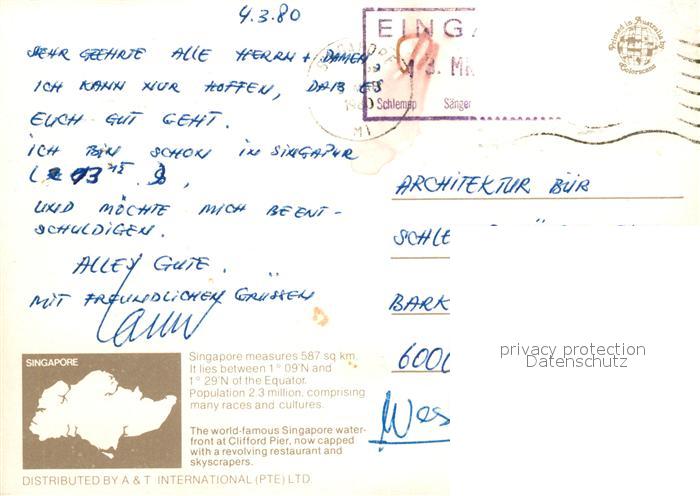 4.3.80
SEHR GEEHRTE ALLE HERRN + DAMEN
ICH KANN NUR HOFFEN, DAß ES
EUCH GUT GEHT.
ICH BIN SCHON IN SINGAPUR
UND MÖCHTE MICH BEENT-
SCHULDIGEN.
ALLES GUTE.
MIT FREUNDLICHEN GRÜSSEN
EINGA
3. MR
Schlemep Sänger
SINGAPORE
1980
Printed in Australia by
Colorscans
ARCHITEKTUR BÜR
SCHLE
BARK
6000
Wes
privacy protection
Datenschutz
SINGAPORE
Singapore measures 587 sq km.
It lies between 1° 09'N and
1° 29'N of the Equator.
Population 2.3 million, comprising
many races and cultures.
The world-famous Singapore water-
front at Clifford Pier, now capped
with a revolving restaurant and
skyscrapers.
DISTRIBUTED BY A & T INTERNATIONAL (PTE) LTD.